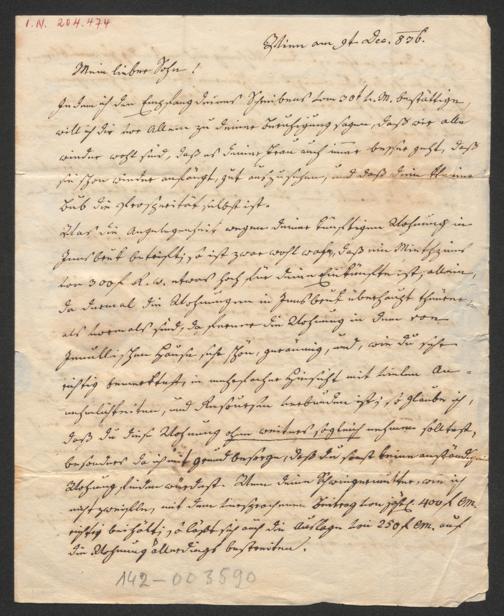 I.N. 204.474
Wien am 9t Dec. 836.
Mein lieber Sohn!
Indem ich den Empfang deines Schreibens vom 30t v. M. bestättige,
will ich dir vor Allem zu deiner Beruhigung sagen, daß wir alle
wieder wohl sind, daß es deiner Frau auch immer besser geht, daß
sie schon wieder anfängt, gut auszusehen, und daß dein kleiner
Bub die Prosperität selbst ist.
Was die Angelegenheit wegen deiner künftigen Wohnung in
Innsbruk betrifft, so ist zwar wohl wahr, daß ein Miethzins
von 300f R. W. etwas hoch für deine Einkünfte ist, allein,
da dermal die Wohnungen in Innsbruk überhaupt theurer
als vormals sind, da ferner die Wohnung in dem von
schen Hause sehr schön, geräumig, und, wie du sehr
richtig bemerktest, in mehrfacher Hinsicht mit vielen An-
nehmlichkeiten, und Resourcen verbunden ist; so glaube ich,
daß du diese Wohnung ohne weiters sogleich nehmen solltest,
besonders da ich mit Grund besorge, daß du sonst keine anständige
Wohnung finden würdest. Wenn deine Schwiegermutter, wie ich
nicht zweifle, mit dem versprochenen Beitrag von jährl. 400 f CM.
richtig beihält, so läßt sich auch die Auslage von 250 f CM. auf
die Wohnung allerdings bestreiten.
142-003590